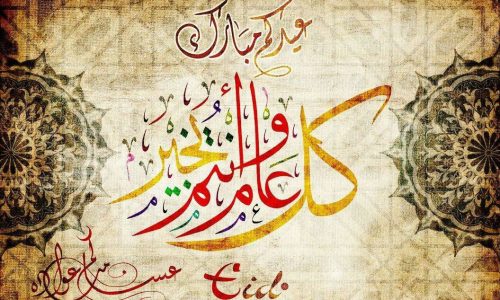 عيدكم مبارك
كل عام وأنتم بخير
عواده
Eid